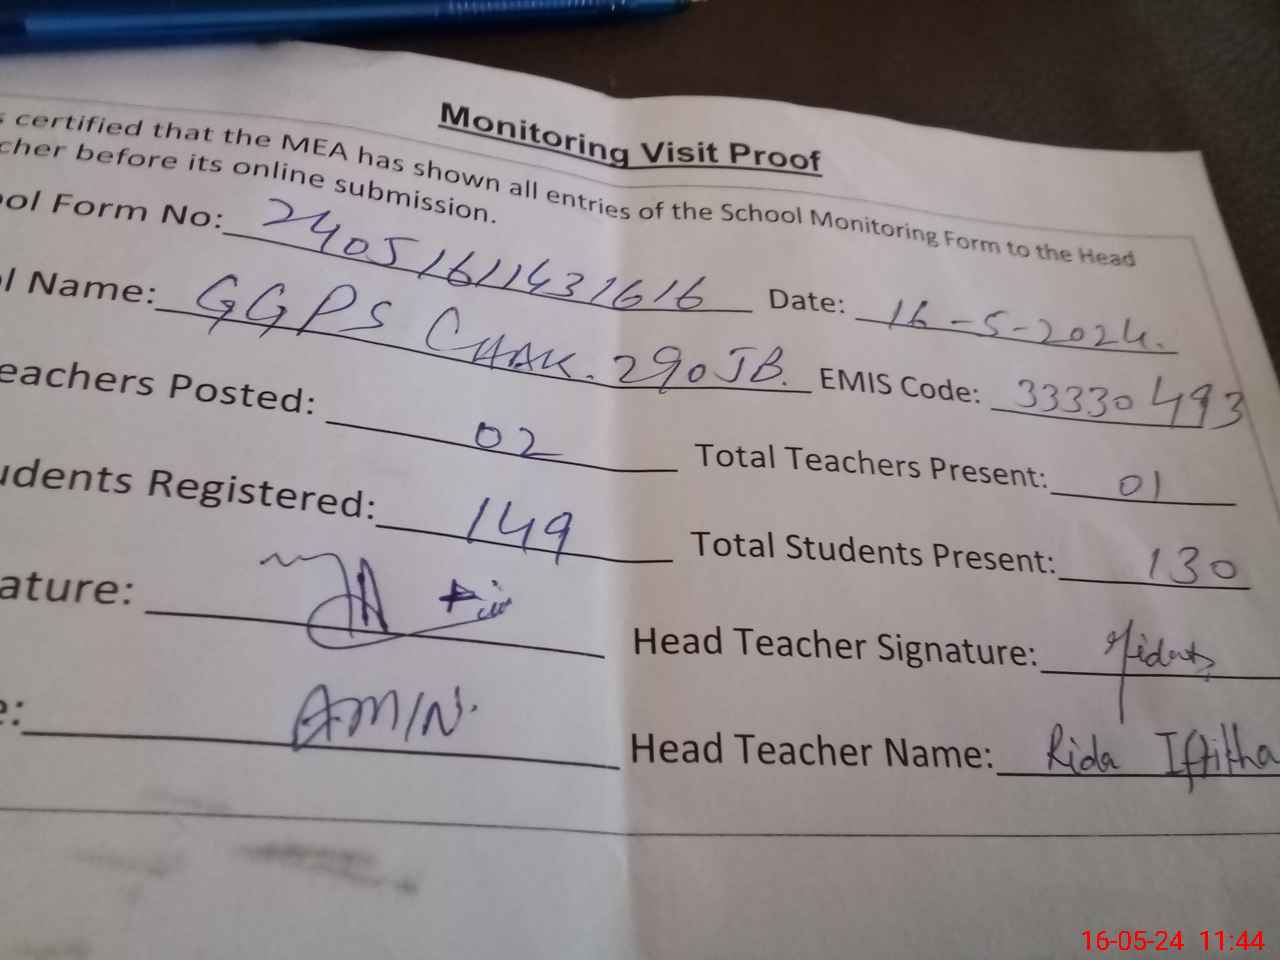 Monitoring Visit Proof
s certified that the MEA has shown all entries of the School Monitoring Form to the Head
cher before its online submission.
ool Form No: 24051611431616 Date: 16-5-2024.
l Name: GGPS CHAK. 290 JB. EMIS Code: 33330493
eachers Posted: 02 Total Teachers Present: 01
udents Registered: 149 Total Students Present: 130
ature: Head Teacher Signature:
e: AMIN. Head Teacher Name: Rida Iftikha
16-05-24 11:44